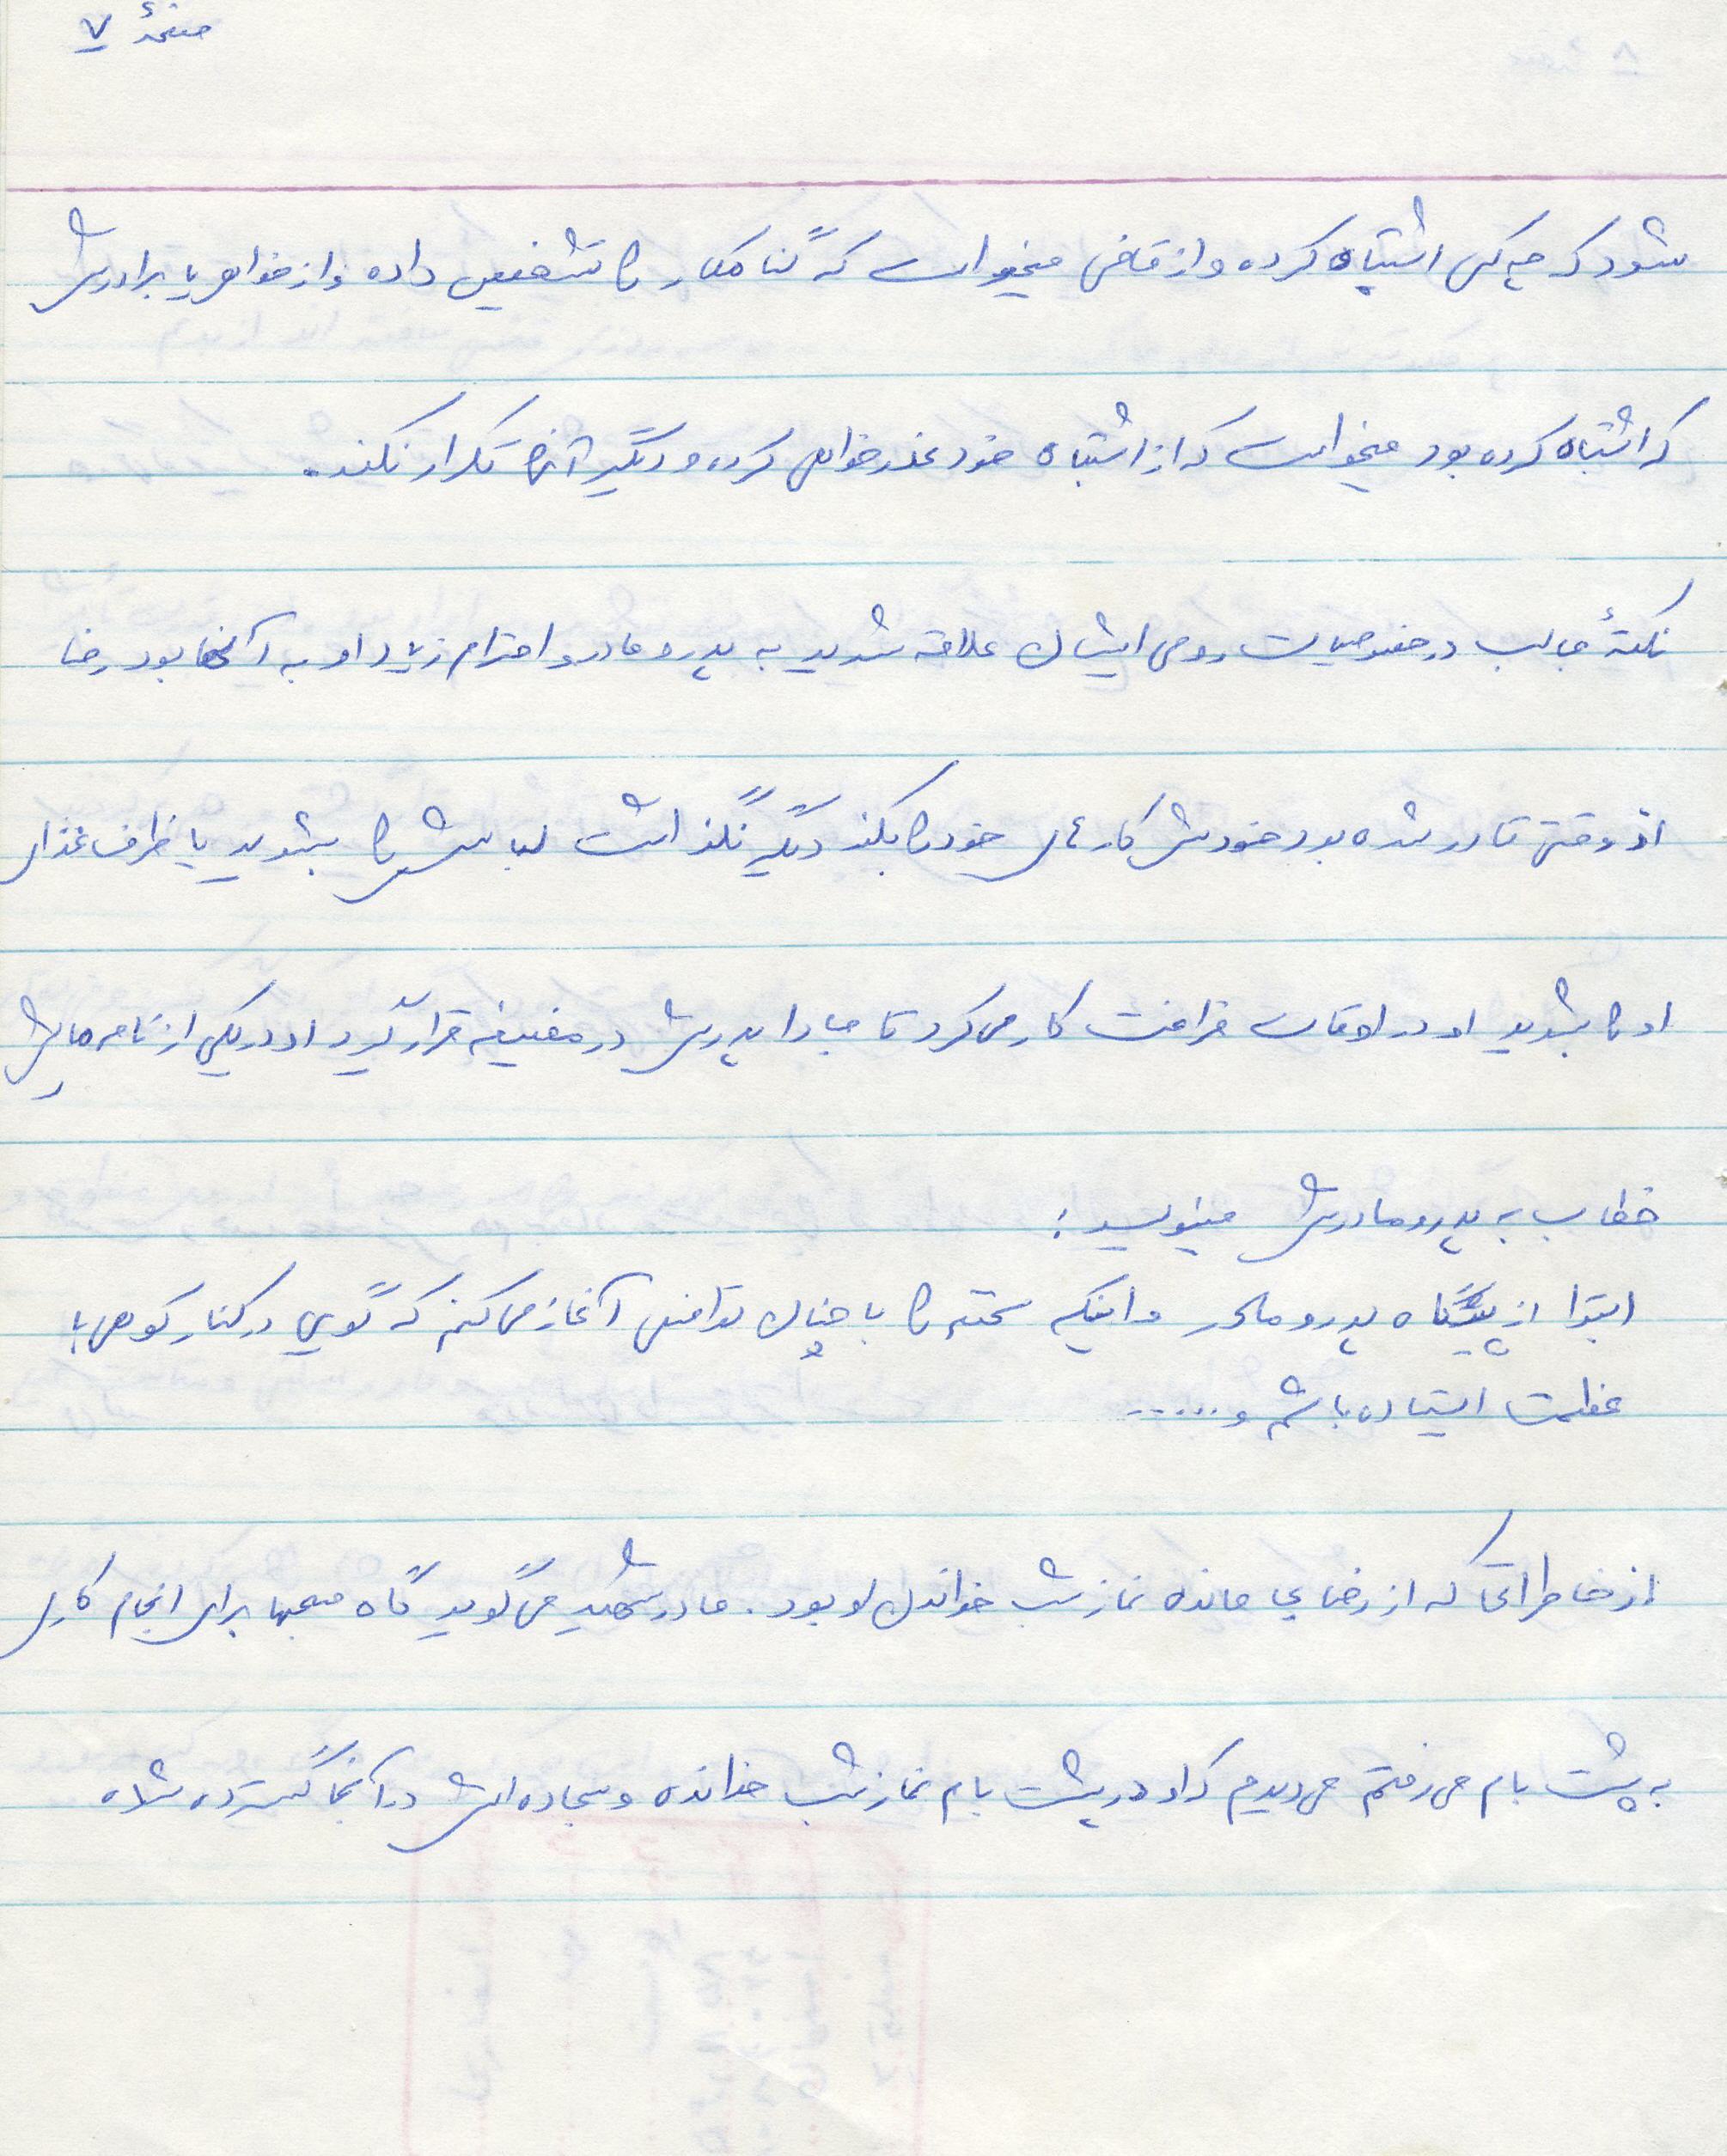 صفحهٔ ۷
شود که چه کسی اشتباه کرده و از قاضی میخواست که گناهکار را تشخیص داده و از خواهر یا برادرش
که اشتباه کرده بود میخواست که از اشتباه خود عذرخواهی کرده و دیگر آنرا تکرار نکند.
نکتهٔ جالب در خصوصیات روحی ایشان علاقه شدید به پدر و مادر و احترام زیاد او به آنها بود رضا
از وقتی قادر شده بود خودش کارهای خود را بکند دیگر نگذاشت لباسش را بشوید یا ظرف غذای
او را بشوید او در اوقات فراغت کار می‌کرد تا مبادا پدرش در مضیقه قرار گیرد او در یکی از نامه‌هایش
خطاب به پدر و مادرش مینویسد:
ابتدا از پدر و مادر و اینکه سخنم را با چنان تواضعی آغاز می‌کنم که گویی در کنار کوهی با
عظمت ایستاده باشم و .....
از خاطراتی که از رضا بجا مانده نماز شب خواندن او بود. مادر شهید می‌گوید گاه صبحها برای انجام کاری
به پشت بام می‌رفتم می‌دیدم که او در پشت بام نماز شب خوانده و سجاده‌اش در آنجا گسترده شده